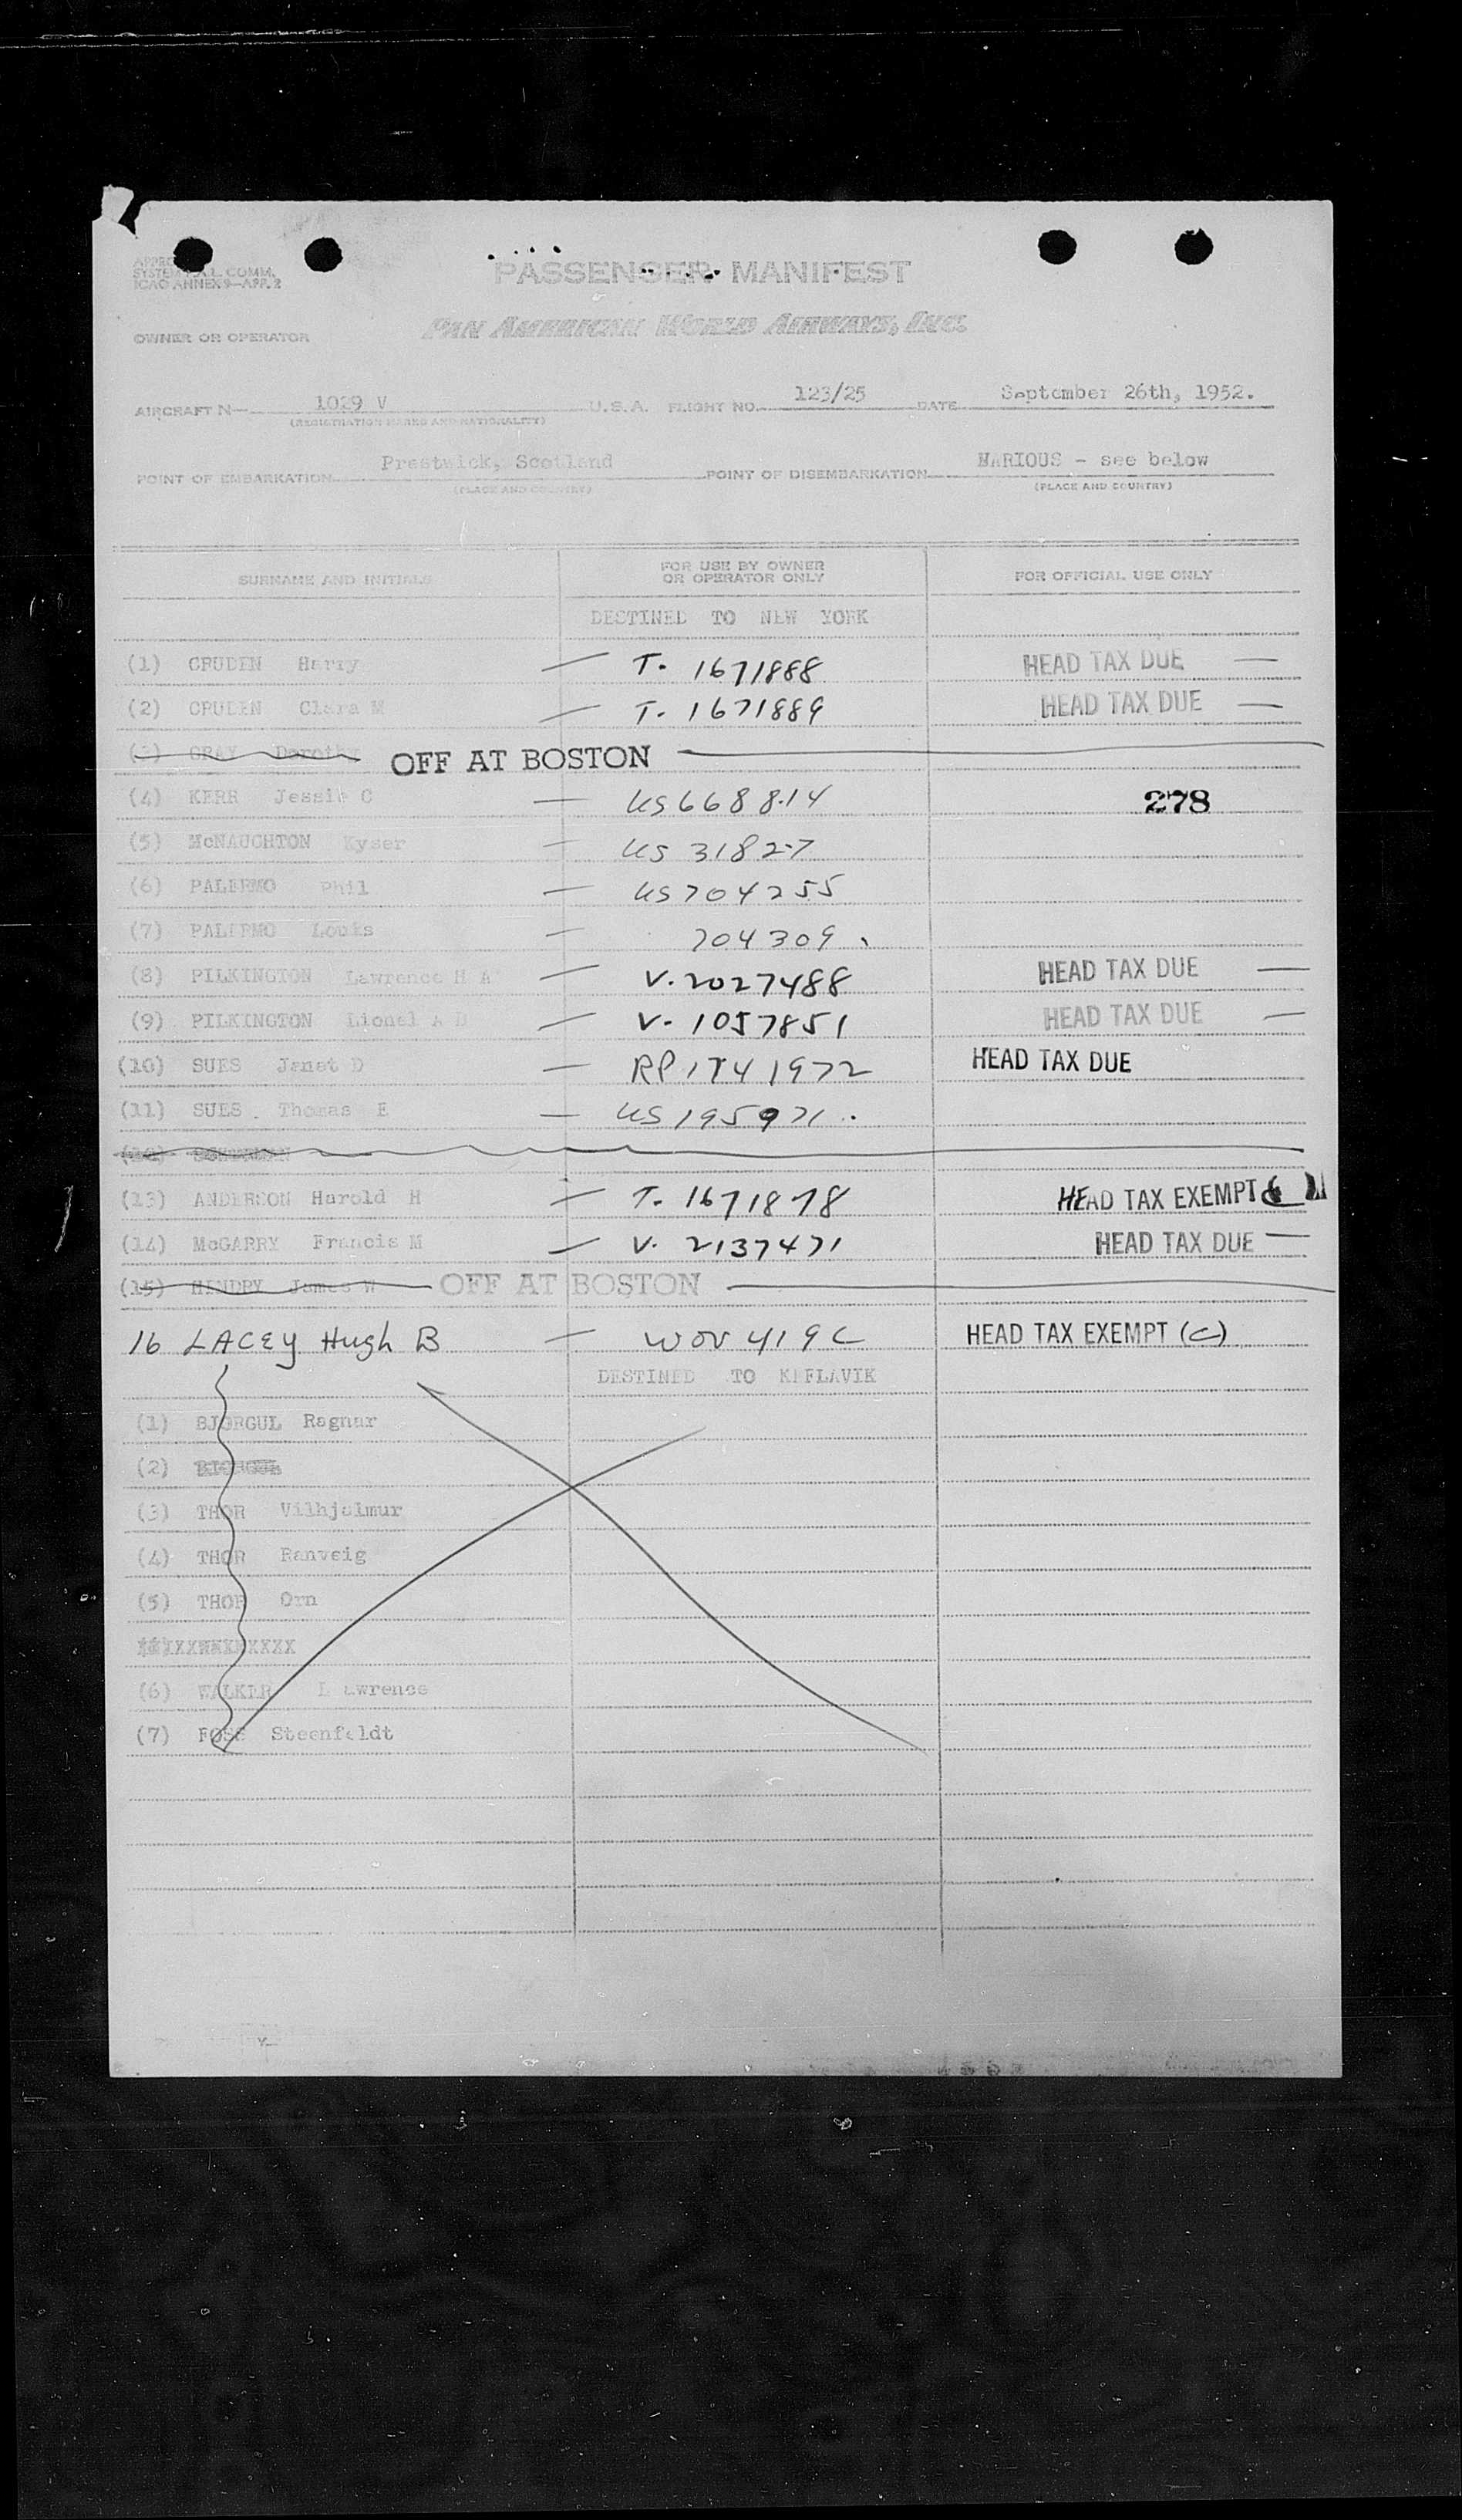 SYSTEM F.A.L. COMM.
ICAO ANNEX 9—APP. 2
PASSENGER MANIFEST
OWNER OR OPERATOR PAN AMERICAN WORLD AIRWAYS, INC.
AIRCRAFT N— 1029 V U.S.A. FLIGHT NO. 123/25 DATE September 26th, 1952.
(REGISTRATION MARKS AND NATIONALITY)
POINT OF EMBARKATION Prestwick, Scotland POINT OF DISEMBARKATION WARIOUS - see below
(PLACE AND COUNTRY) (PLACE AND COUNTRY)
SURNAME AND INITIALS FOR USE BY OWNER OR OPERATOR ONLY FOR OFFICIAL USE ONLY
DESTINED TO NEW YORK
(1) CRUDEN Harry — T. 1671888 HEAD TAX DUE —
(2) CRUDEN Clara M — T. 1671889 HEAD TAX DUE —
(3) GRAY Dorothy OFF AT BOSTON
(4) KERR Jessie C — US 668814 278
(5) McNAUGHTON Kyser — US 31827
(6) PALERMO Phil — US 704255
(7) PALERMO Louis — 704309
(8) PILKINGTON Lawrence H A — V. 2027488 HEAD TAX DUE —
(9) PILKINGTON Lionel A — V. 1057851 HEAD TAX DUE —
(10) SUES Janet D — RP 1741972 HEAD TAX DUE
(11) SUES. Thomas E — US 195971.
(12)
(13) ANDERSON Harold H — T. 1671878 HEAD TAX EXEMPT
(14) McGARRY Francis M — V. 2137471 HEAD TAX DUE —
(15) HENDRY James W OFF AT BOSTON
16 LACEY Hugh B — WOV 419 C HEAD TAX EXEMPT (C)
DESTINED TO KEFLAVIK
(1) BJORGUL Ragnar
(2)
(3) THOR Vilhjalmur
(4) THOR Ranveig
(5) THOR Orn
(6) WALKER Lawrence
(7) FOSS Steenfeldt